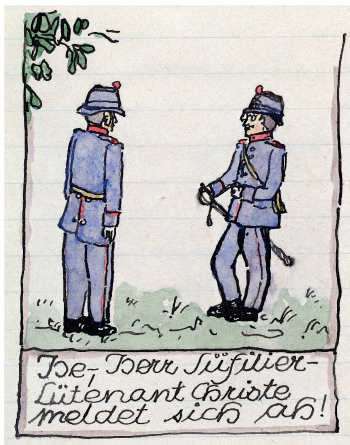 He-, Herr Füsilier-
Lütenant Christe
meldet sich ab!